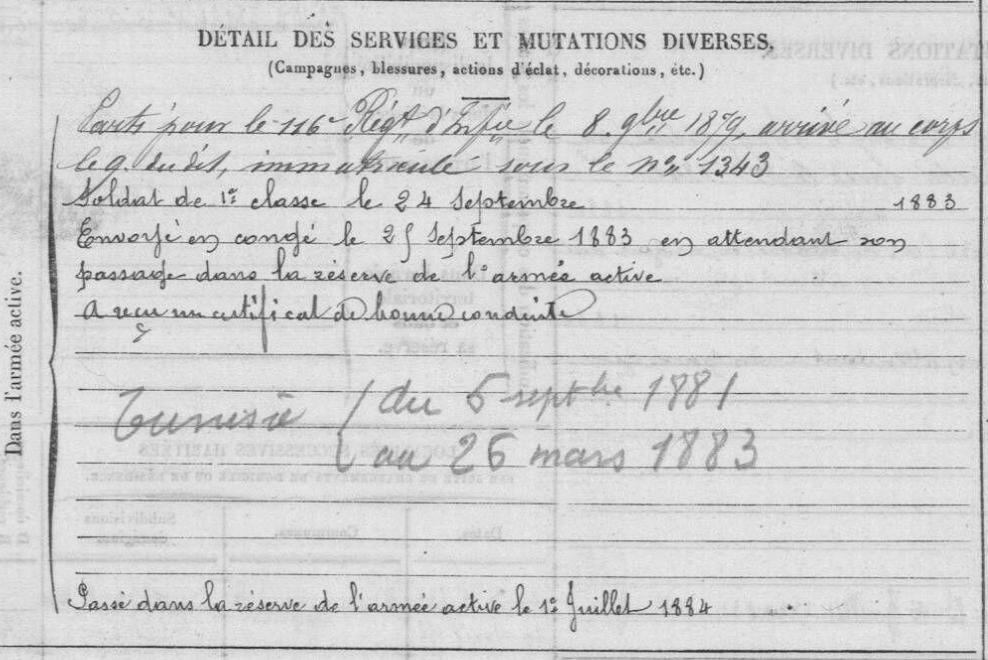 DÉTAIL DES SERVICES ET MUTATIONS DIVERSES.
(Campagnes, blessures, actions d'éclat, décorations, etc.)
Dans l'armée active.
Parti pour le 116e Régt d'Infie le 8. 9bre 1879, arrivé au corps
le 9. dudit, immatriculé sous le no 1343
Soldat de 1e classe le 24 Septembre 1883
Envoyé en congé le 25 Septembre 1883 en attendant son
passage dans la réserve de l'armée active
A reçu un certificat de bonne conduite
Tunisie ( du 5 septbre 1881
au 26 mars 1883
Passé dans la réserve de l'armée active le 1e Juillet 1884